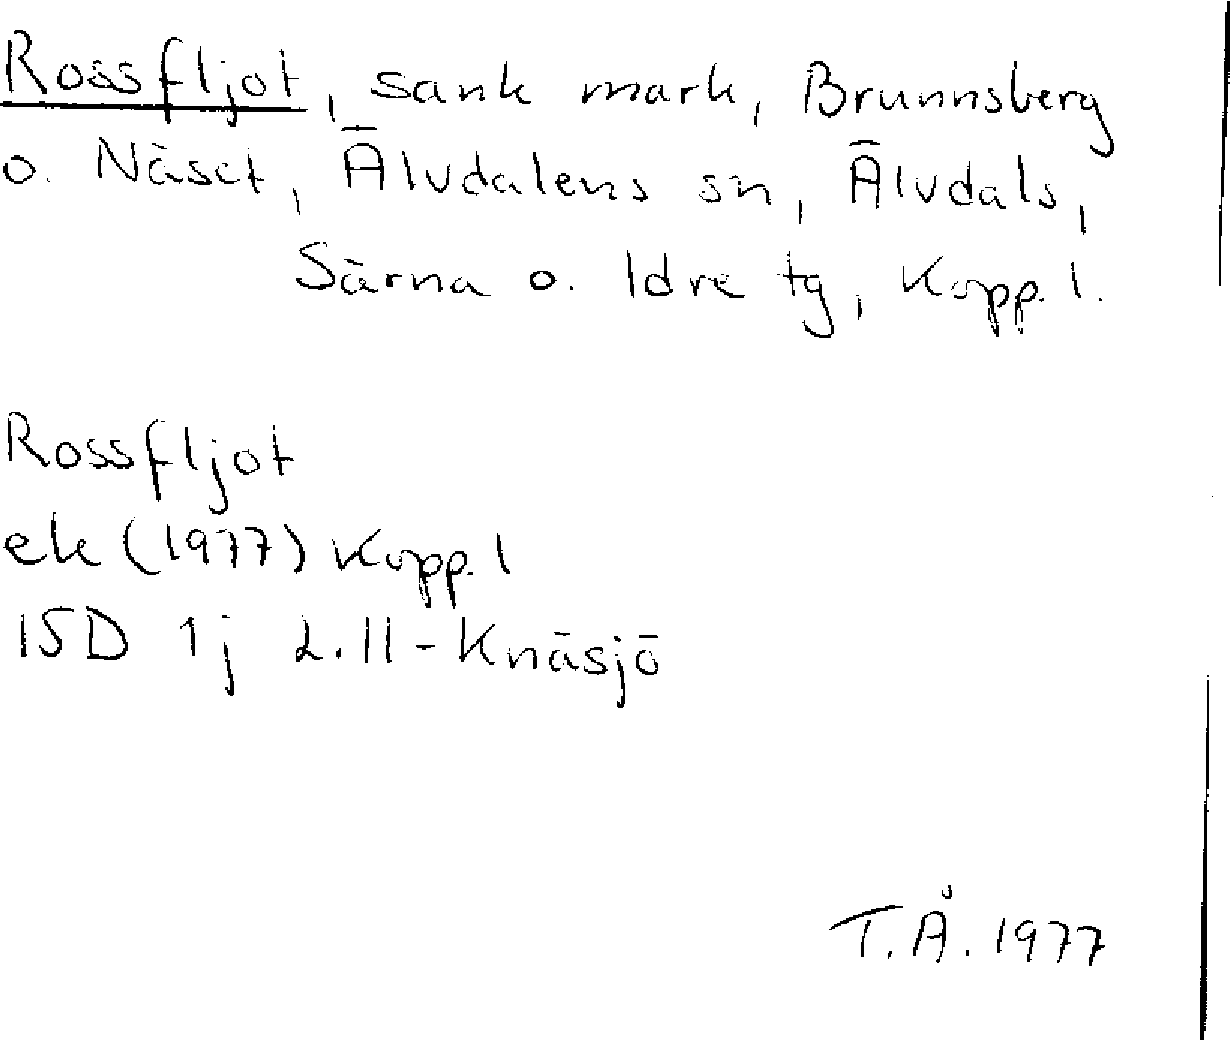 Rossfljot, sank mark, Brunnsberg
o. Näset, Älvdalens sn, Älvdals,
Särna o. Idre tg, Kopp. l.
Rossfljot
ek (1977) Kopp. l
15D 1j 2.11 - Knäsjö
T.Å. 1977